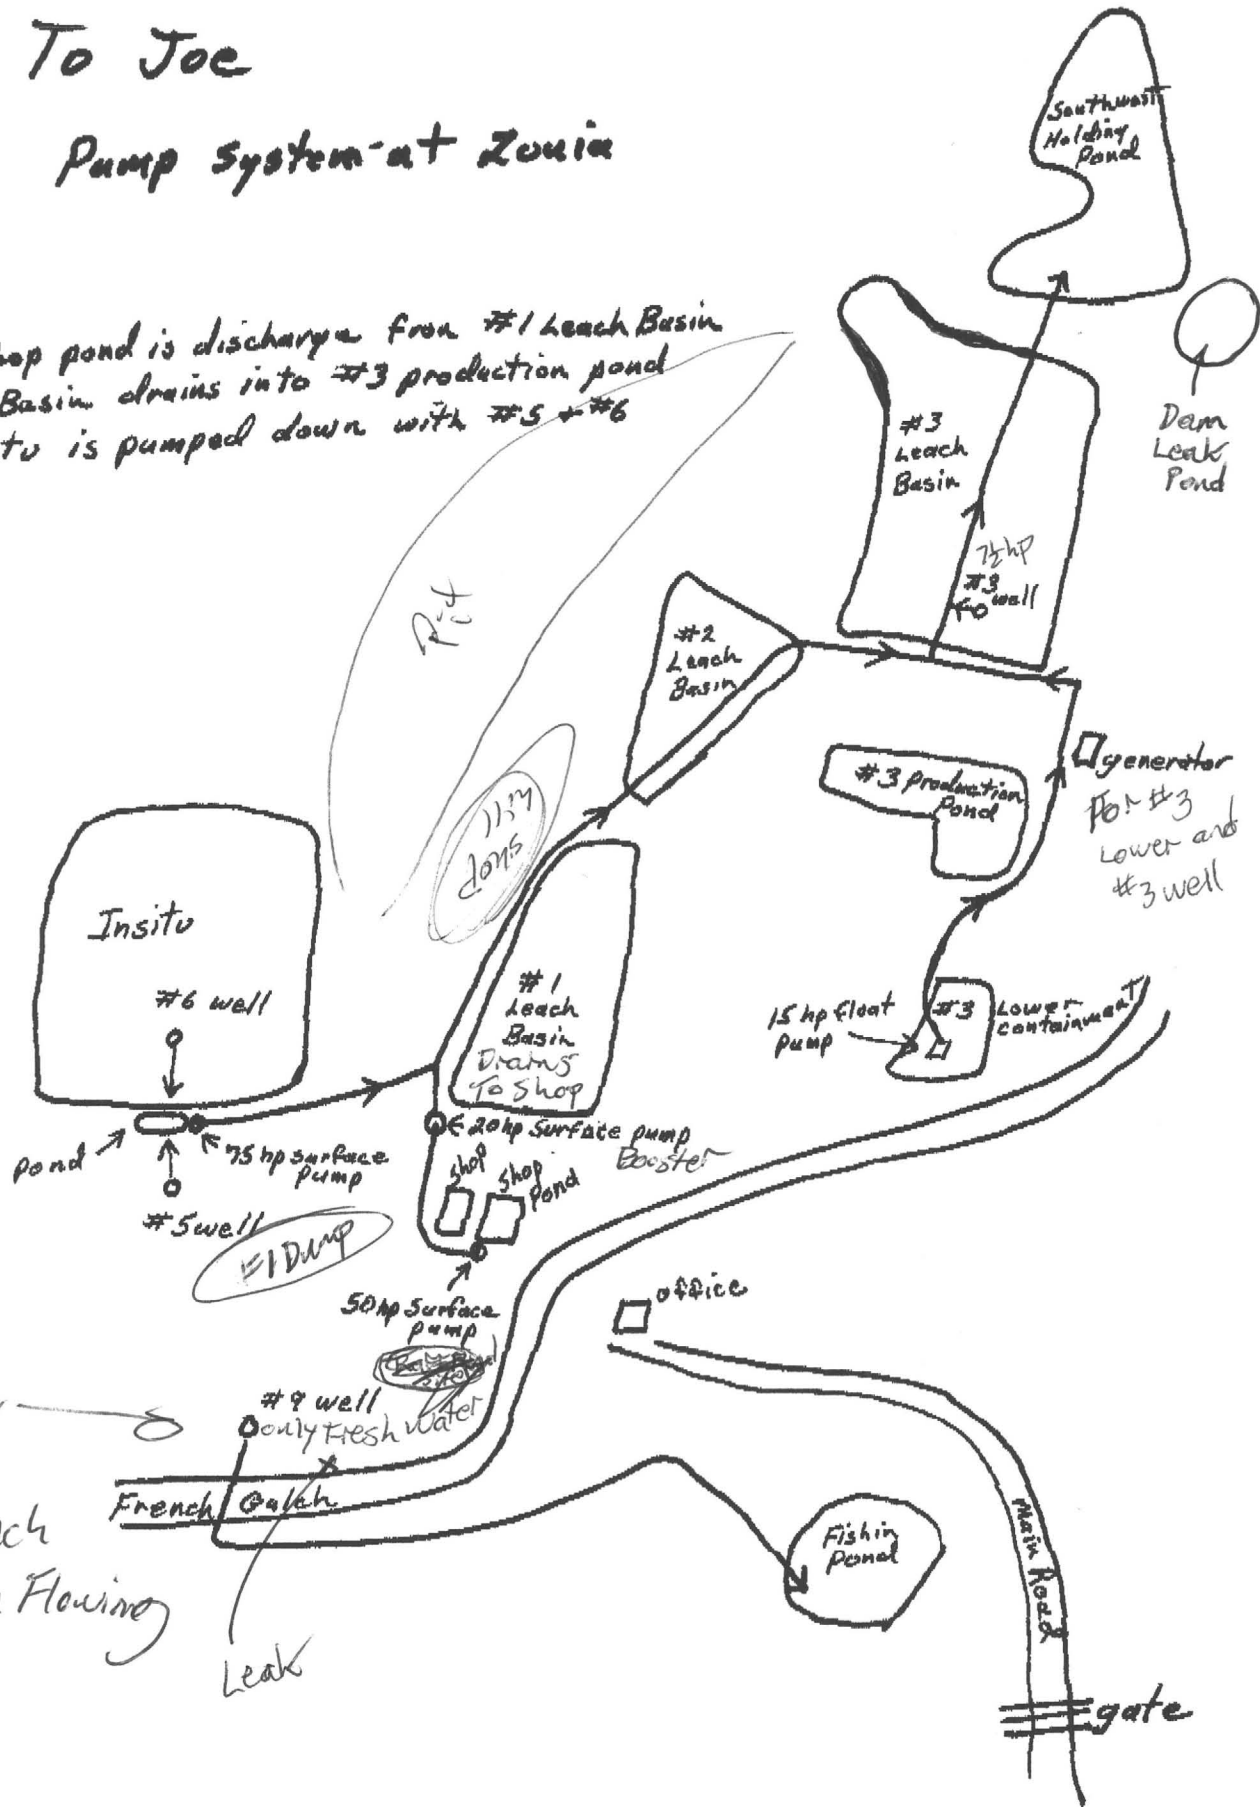 To Joe
Pump system-at Zonia
Southwest
Holding
Pond
hop pond is discharge from #1 Leach Basin
Basin drains into #3 production pond
tu is pumped down with #5 + #6
Dam
Leak
Pond
#3
Leach
Basin
7½hp
#3
well
Pit
#2
Leach
Basin
shop
hill
#3 production
Pond
generator
For #3
Lower and
#3 well
Insitu
#6 well
#1
Leach
Basin
Drains
To Shop
15 hp float
pump
#3 Lower
containment
pond
75 hp surface
pump
#5 well
20hp surface pump
Booster
shop
shop
pond
Dump
50hp surface
pump
office
#9 well
only Fresh Water
French Gulch
ch
Flowing
Leak
Fishin
pond
Main Road
gate